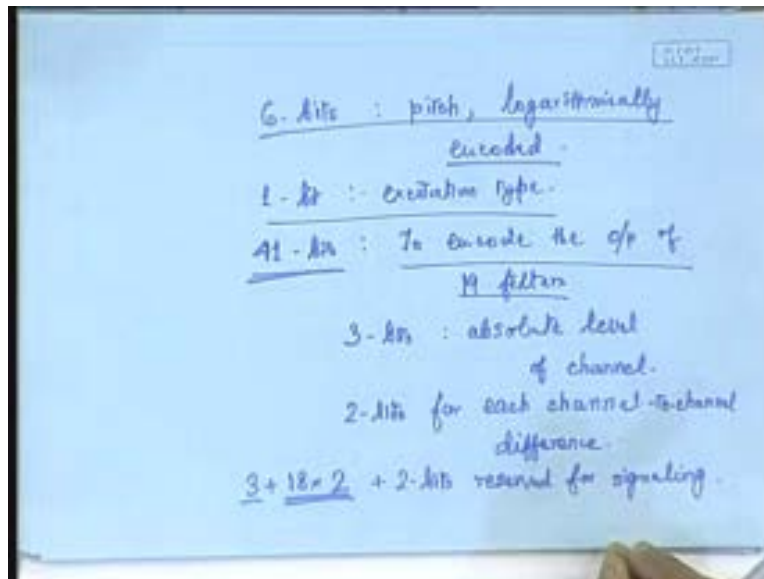 6-bits : pitch, logarithmically
encoded.
1-bit :- excitation type.
41-bits : To encode the o/p of
19 filters
3-bits : absolute level
of channel.
2-bits for each channel-to-channel
difference.
3 + 18 × 2 + 2-bits reserved for signaling.